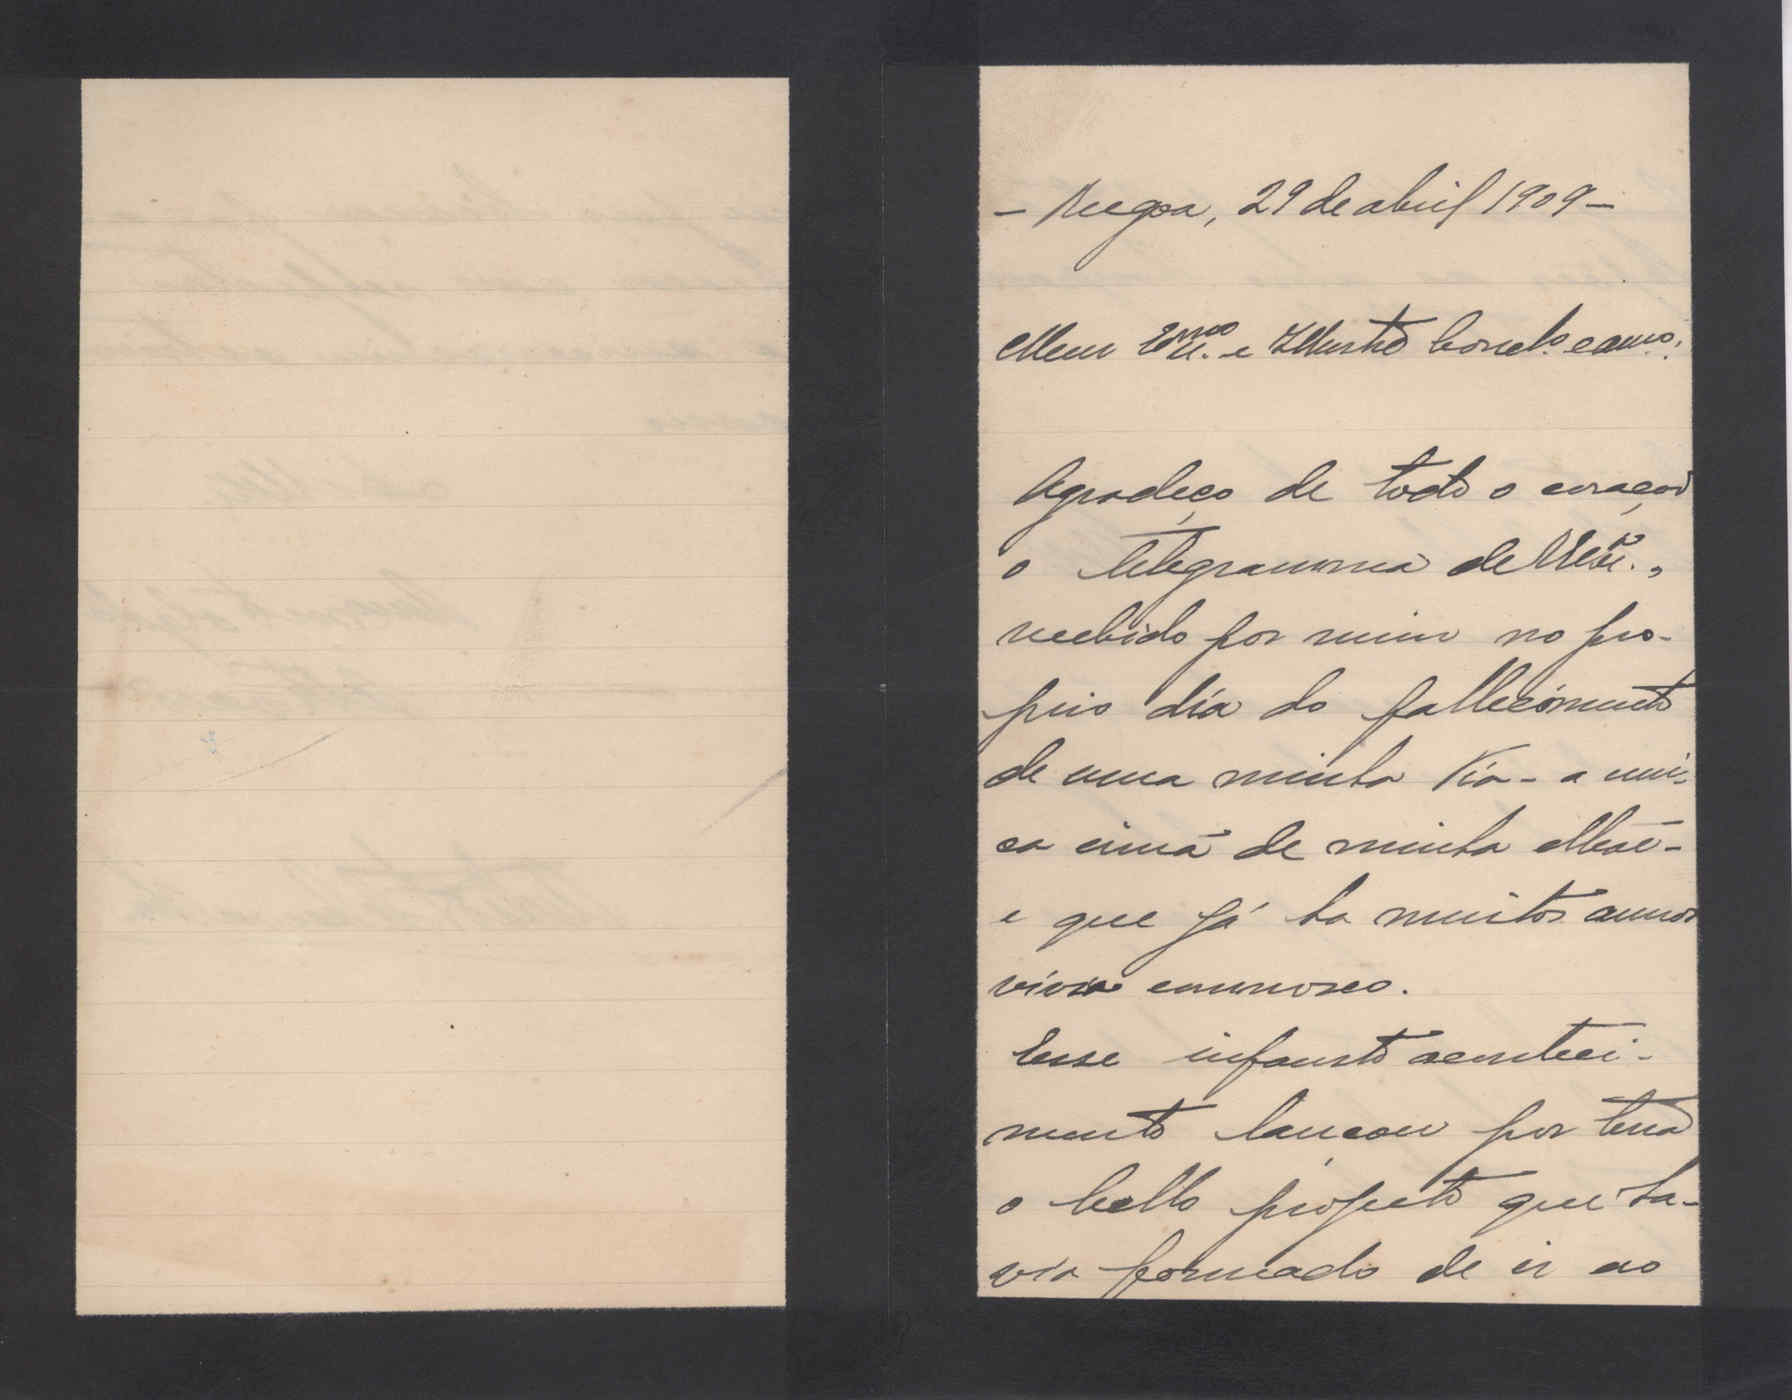 – Regoa, 29 de abril 1909 –
Meu Exmo. e Illustre Correlo. e amo.:
Agradeço de todo o coração
o telegramma de V. Exª.,
recebido por mim no pro-
prio dia do fallecimento
de uma minha tia – a uni-
ca irmã de minha Mãe –
e que já ha muitos annos
vivia comnosco.
Esse infausto aconteci-
mento lançou por terra
o bello projecto que ha-
via formado de ir ao